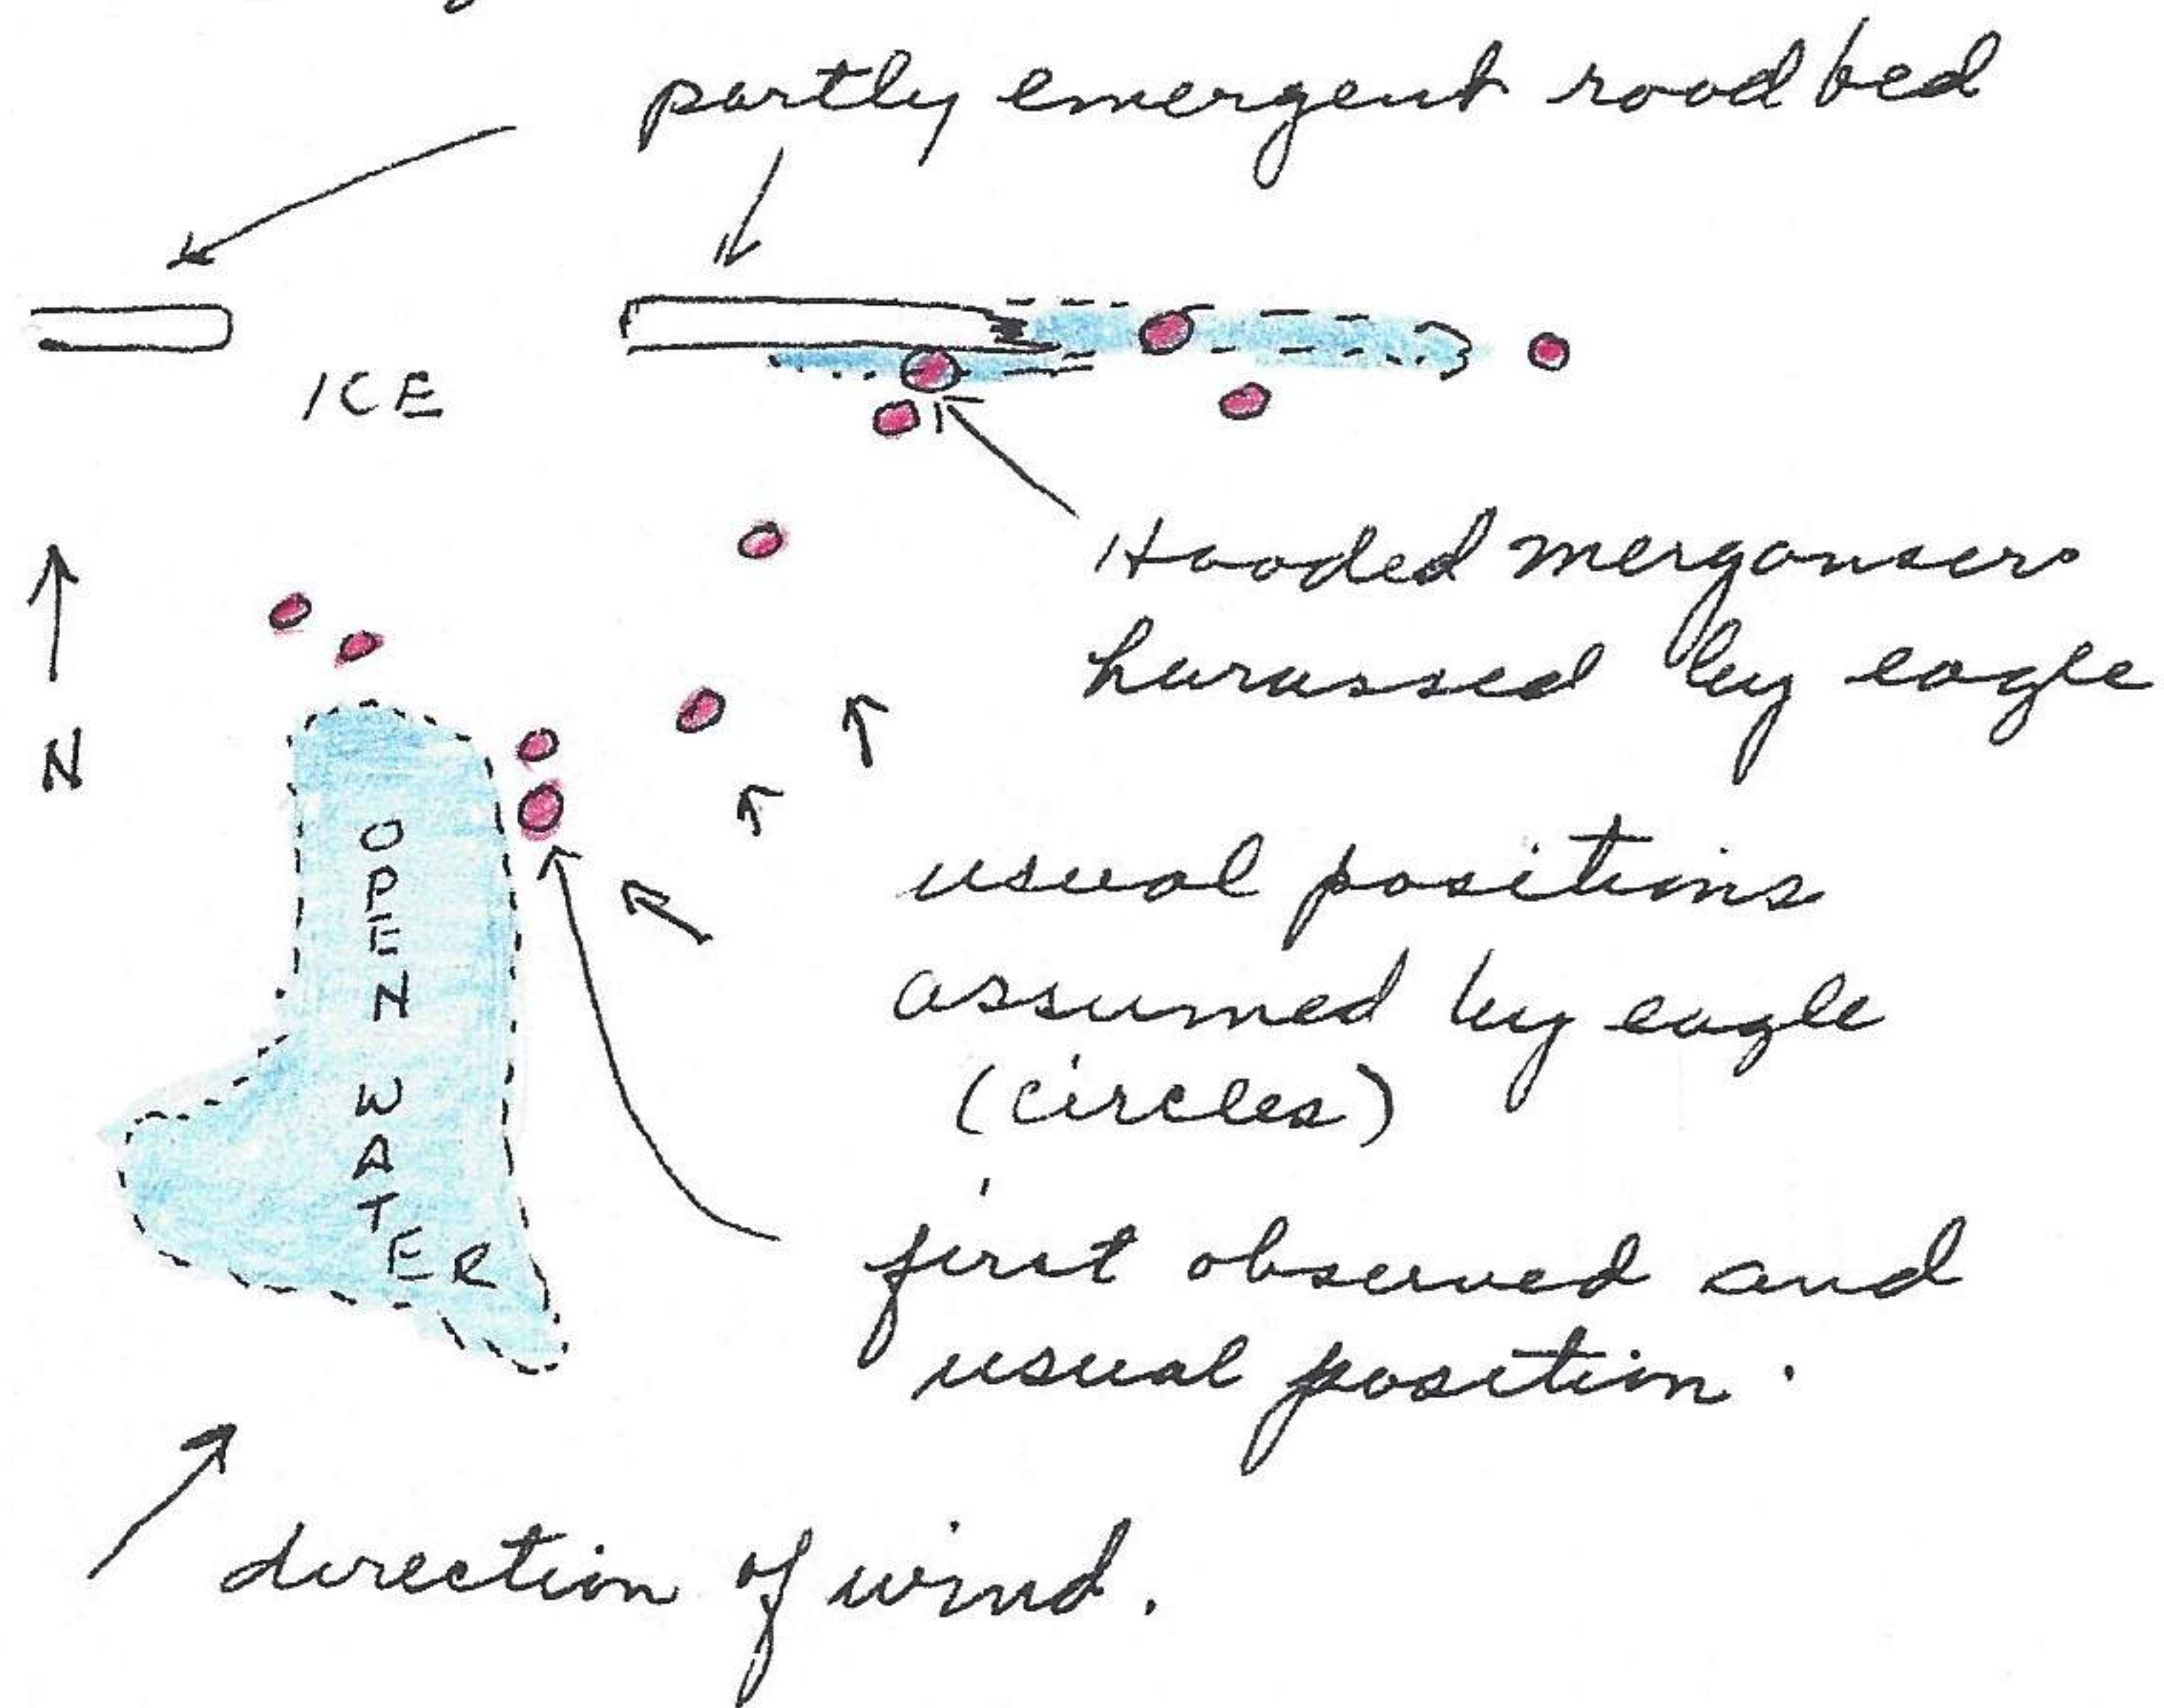 partly emergent road bed
ICE
Hooded mergansers
harassed by eagle
N
OPEN WATER
usual positions
assumed by eagle
(circles)
first observed and
usual position.
direction of wind.